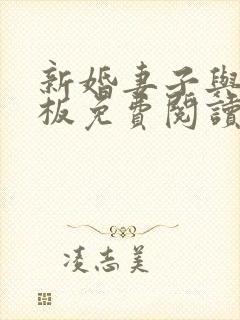 新婚妻子與
板免費閱讀
凌志美